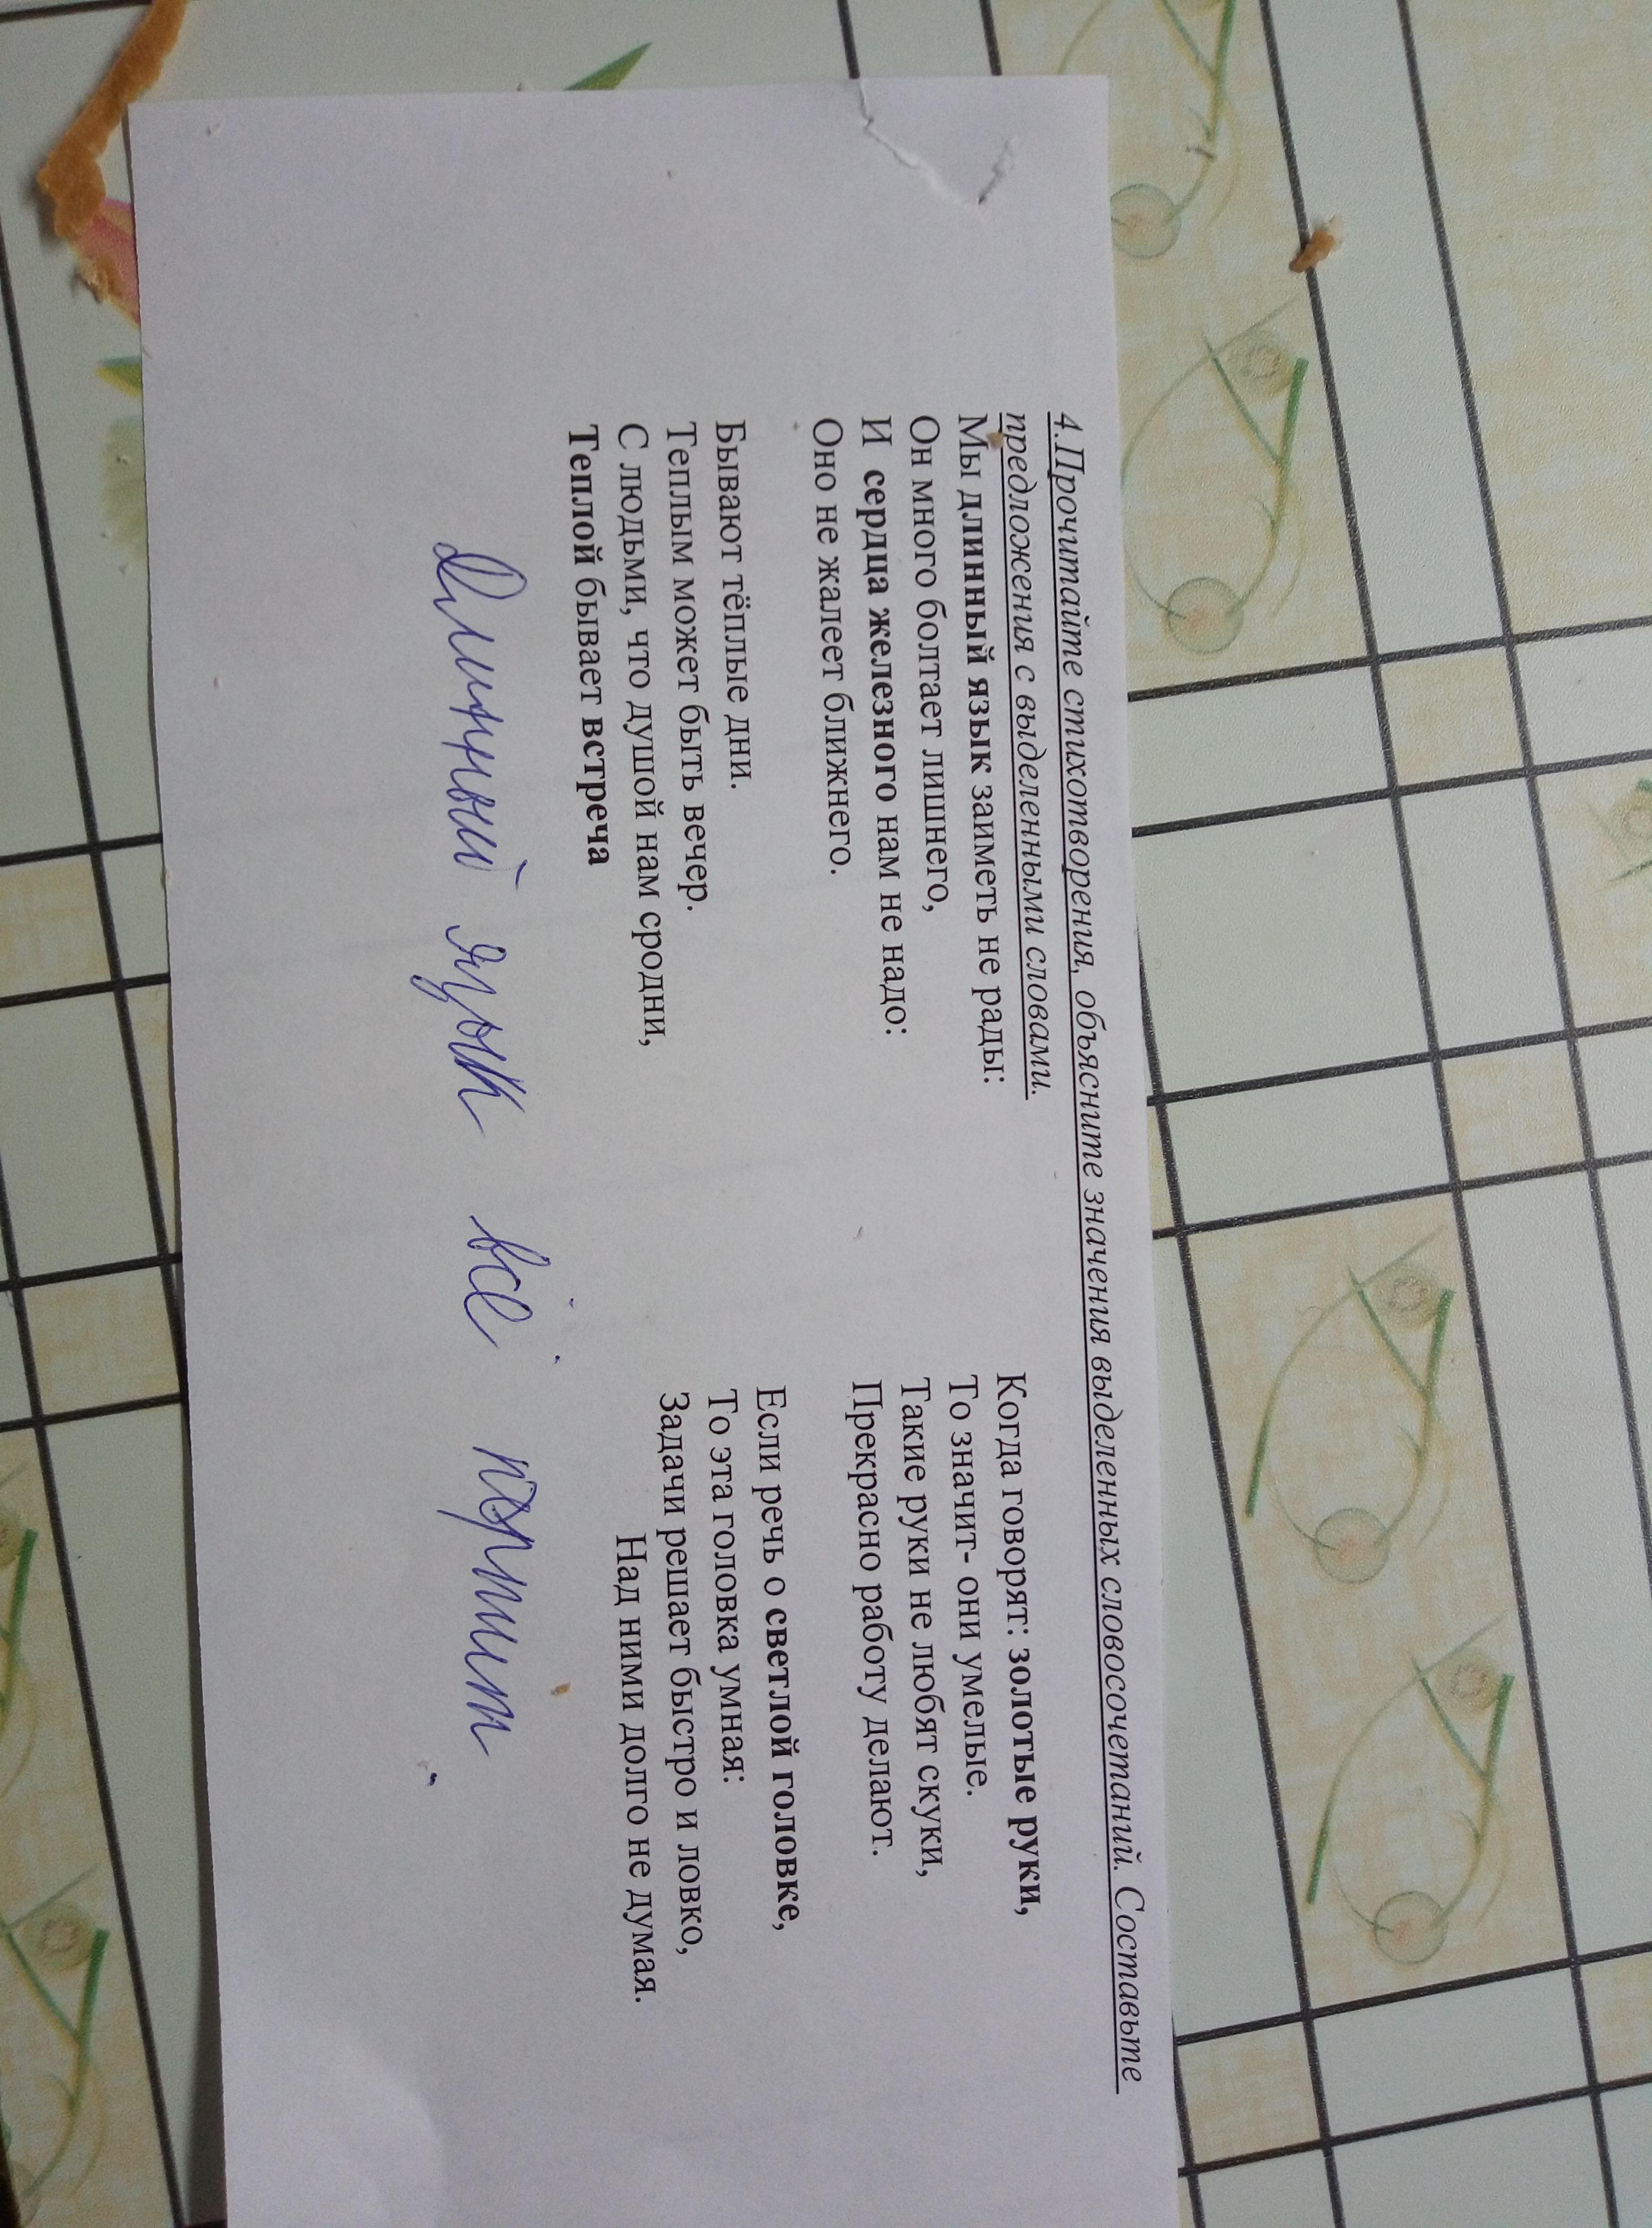 4.Прочитайте стихотворения, объясните значения выделенных словосочетаний. Составьте
предложения с выделенными словами.
Мы длинный язык заиметь не рады:
Он много болтает лишнего,
И сердца железного нам не надо:
Оно не жалеет ближнего.
Бывают тёплые дни.
Теплым может быть вечер.
С людьми, что душой нам сродни,
Теплой бывает встреча
Когда говорят: золотые руки,
То значит- они умелые.
Такие руки не любят скуки,
Прекрасно работу делают.
Если речь о светлой головке,
То эта головка умная:
Задачи решает быстро и ловко,
Над ними долго не думая.
Длинный язык всё портит.